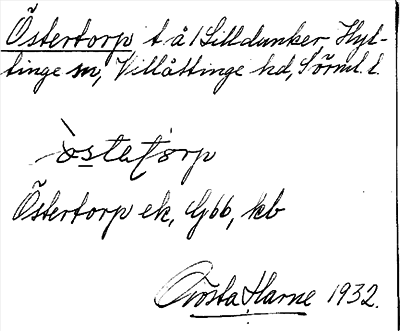 Östertorp t å 1 Lilldunker, Hyl-
tinge sn, Villåttinge hd, Sörml. l.
östatorp
Östertorp ek, G66, kb
Gösta Harne 1932.